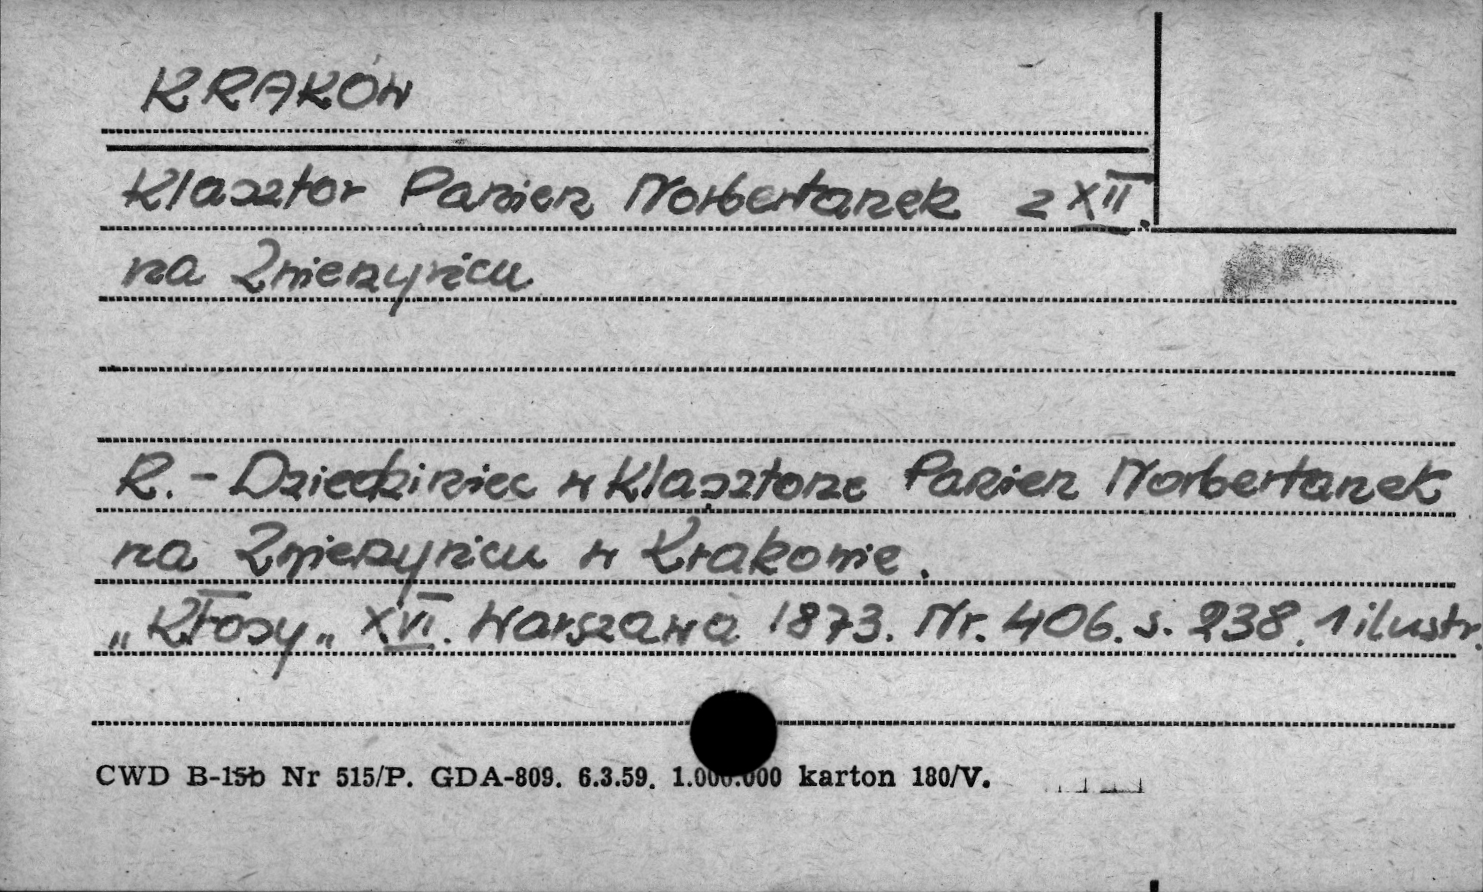 KRAKÓW
Klasztor Panien Norbertanek z XII.
na Zwierzyńcu
R. - Dziedziniec w Klasztorze Panien Norbertanek
na Zwierzyńcu w Krakowie.
„Kłosy„ XVI. Warszawa 1873. Nr. 406. s. 238. 1 ilustr.
CWD B-15b Nr 515/P. GDA-809. 6.3.59. 1.000.000 karton 180/V.